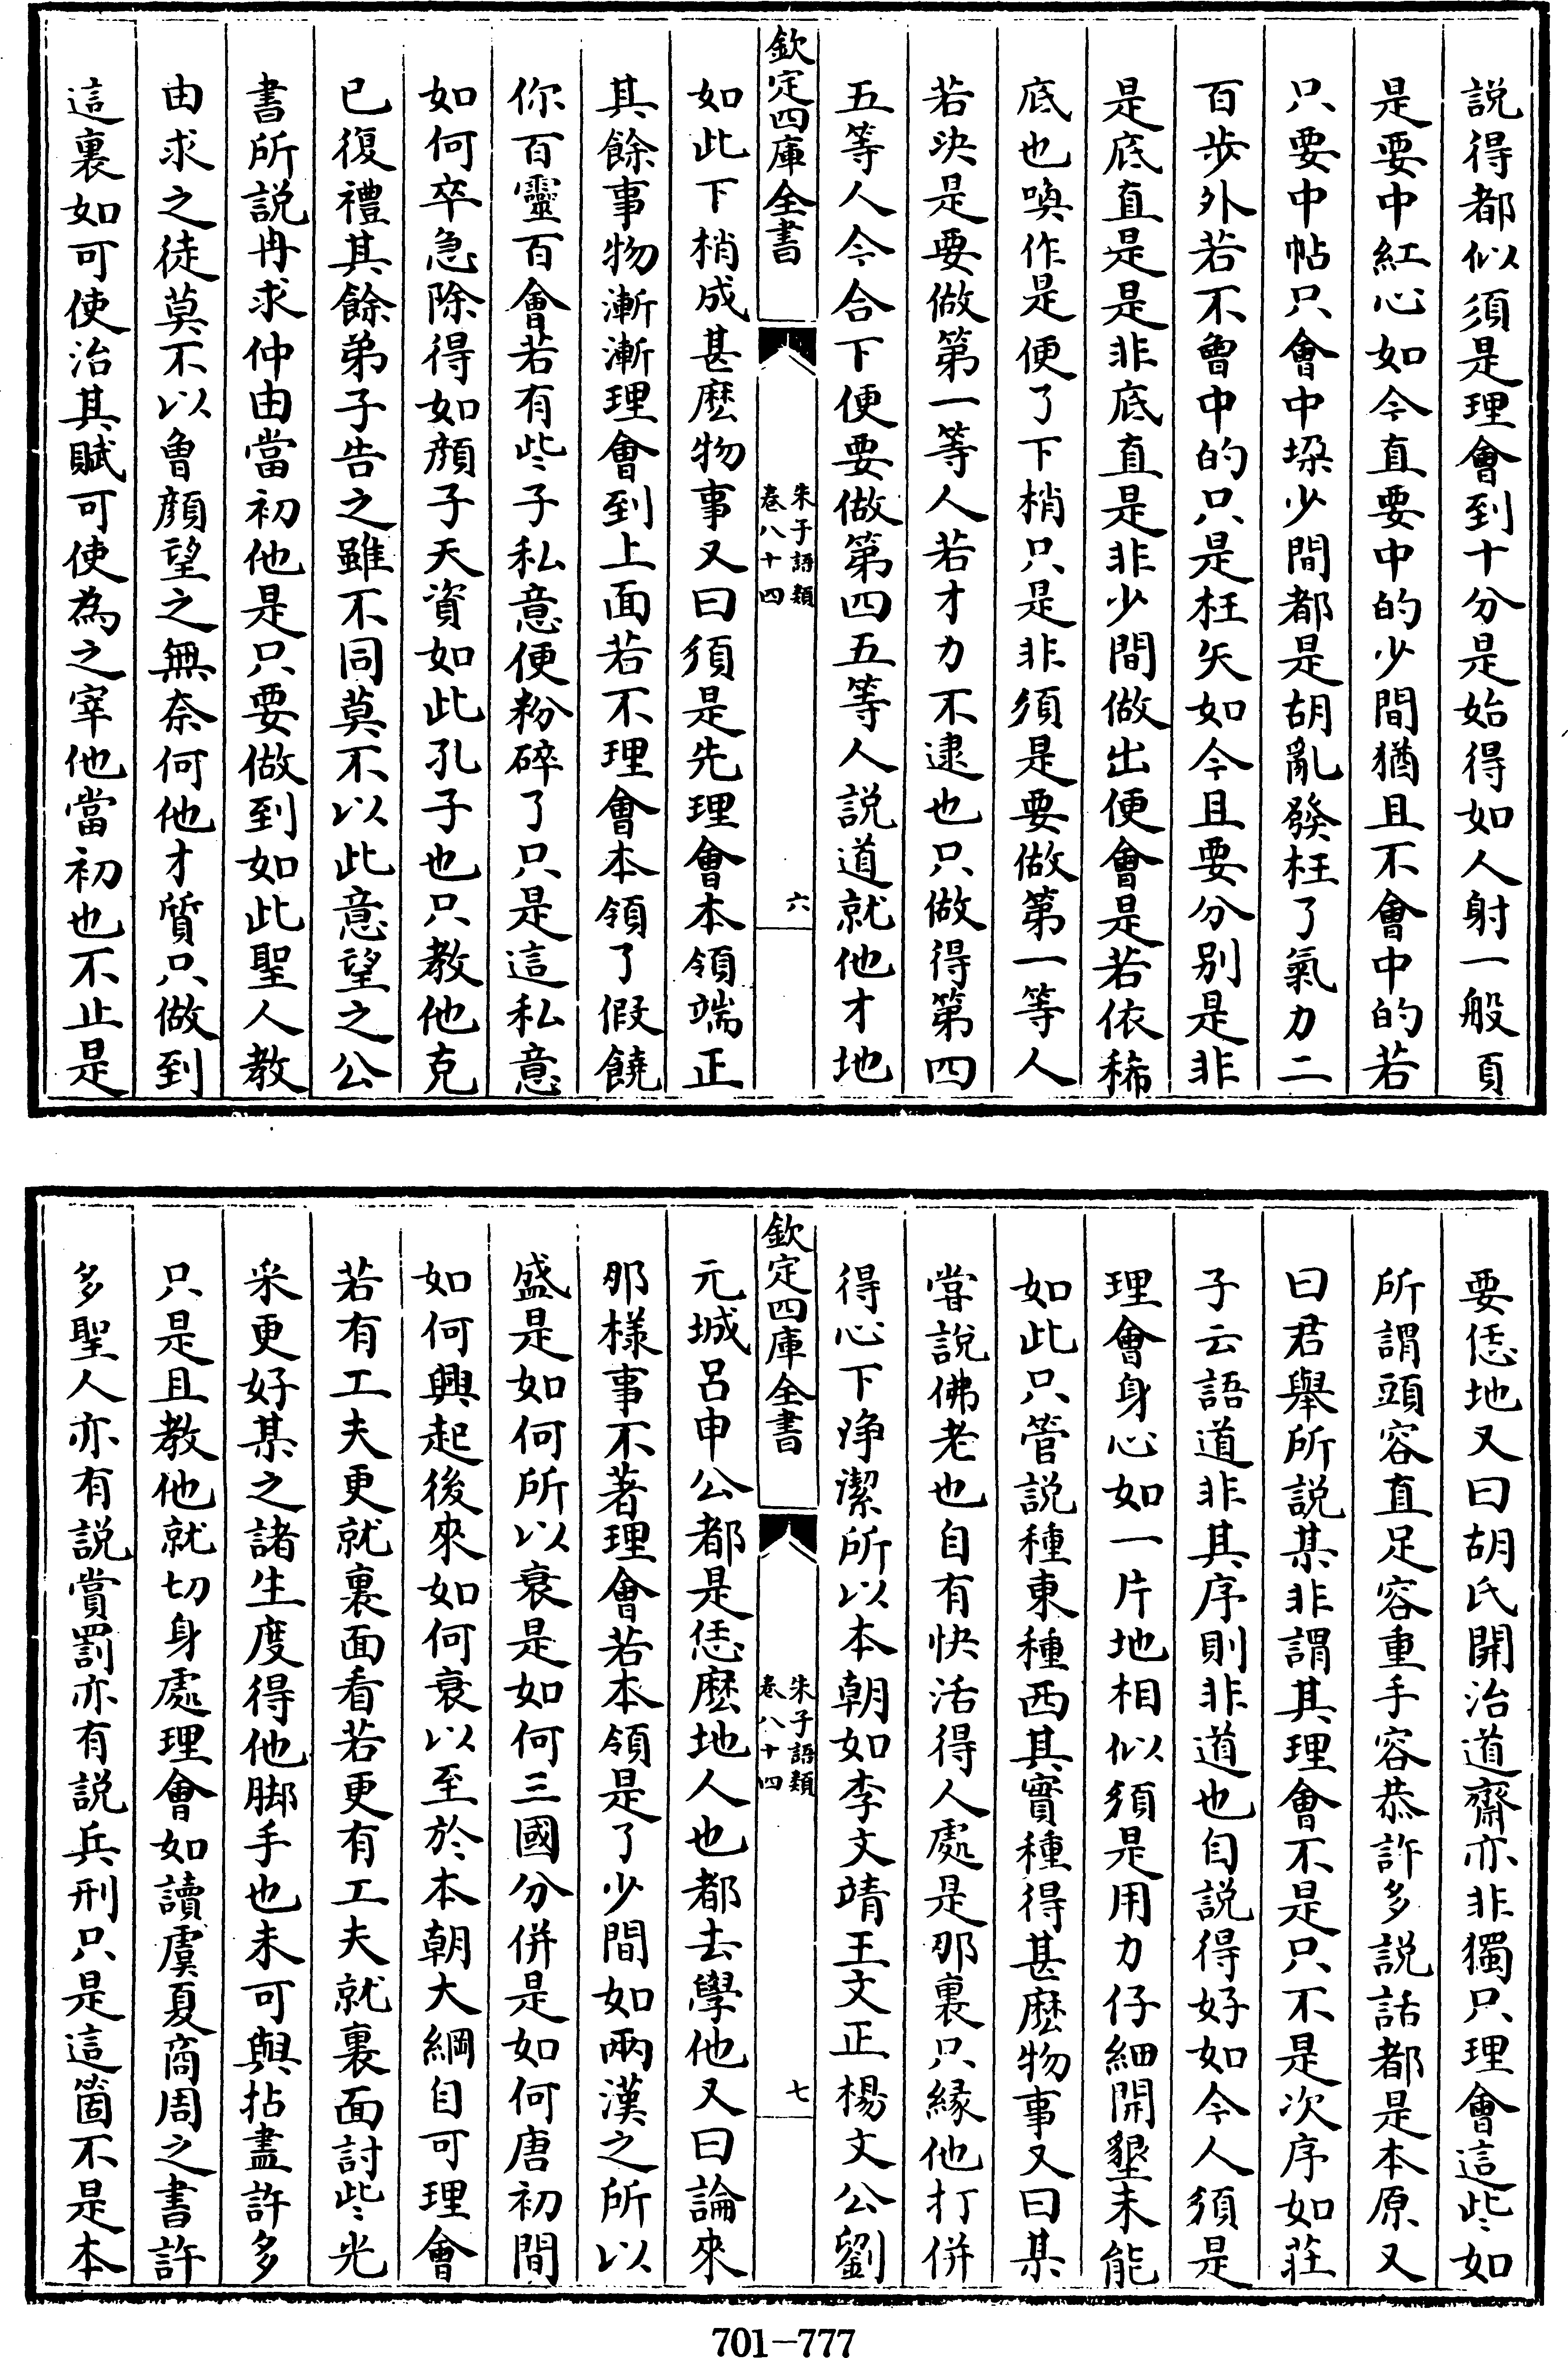 説得都似須是理會到十分是始得如人射一般頁
是要中紅心如今直要中的少間猶且不會中的若
只要中帖只會中垜少間都是胡亂發枉了氣力二
百步外若不曾中的只是枉矢如今且要分别是非
是底直是是非底直是非少間做出便會是若依稀
底也喚作是便了下梢只是非須是要做第一等人
若決是要做第一等人若才力不逮也只做得第四
五等人今合下便要做第四五等人説道就他才地
欽定四庫全書
朱子語類
卷八十四
六
如此下梢成甚麽物事又曰須是先理會本領端正
其餘事物漸漸理會到上面若不理會本領了假饒
你百靈百會若有些子私意便粉碎了只是這私意
如何卒急除得如顔子天資如此孔子也只教他克
已復禮其餘弟子告之雖不同莫不以此意望之公
書所説冉求仲由當初他是只要做到如此聖人教
由求之徒莫不以曾顔望之無奈何他才質只做到
這裏如可使治其賦可使為之宰他當初也不止是
要恁地又曰胡氏開治道齋亦非獨只理會這些如
所謂頭容直足容重手容恭許多説話都是本原又
曰君舉所説某非謂其理會不是只不是次序如莊
子云語道非其序則非道也自説得好如今人須是
理會身心如一片地相似須是用力仔細開墾未能
如此只管説種東種西其實種得甚麽物事又曰某
嘗説佛老也自有快活得人處是那裏只縁他打併
得心下淨潔所以本朝如李文靖王文正楊文公劉
欽定四庫全書
朱子語類
卷八十四
七
元城呂申公都是恁麽地人也都去學他又曰論來
那様事不著理會若本領是了少間如兩漢之所以
盛是如何所以衰是如何三國分併是如何唐初間
如何興起後來如何衰以至於本朝大綱自可理會
若有工夫更就裏面看若更有工夫就裏面討些光
采更好某之諸生度得他脚手也未可與拈盡許多
只是且教他就切身處理會如讀虞夏商周之書許
多聖人亦有説賞罰亦有説兵刑只是這箇不是本
701-777